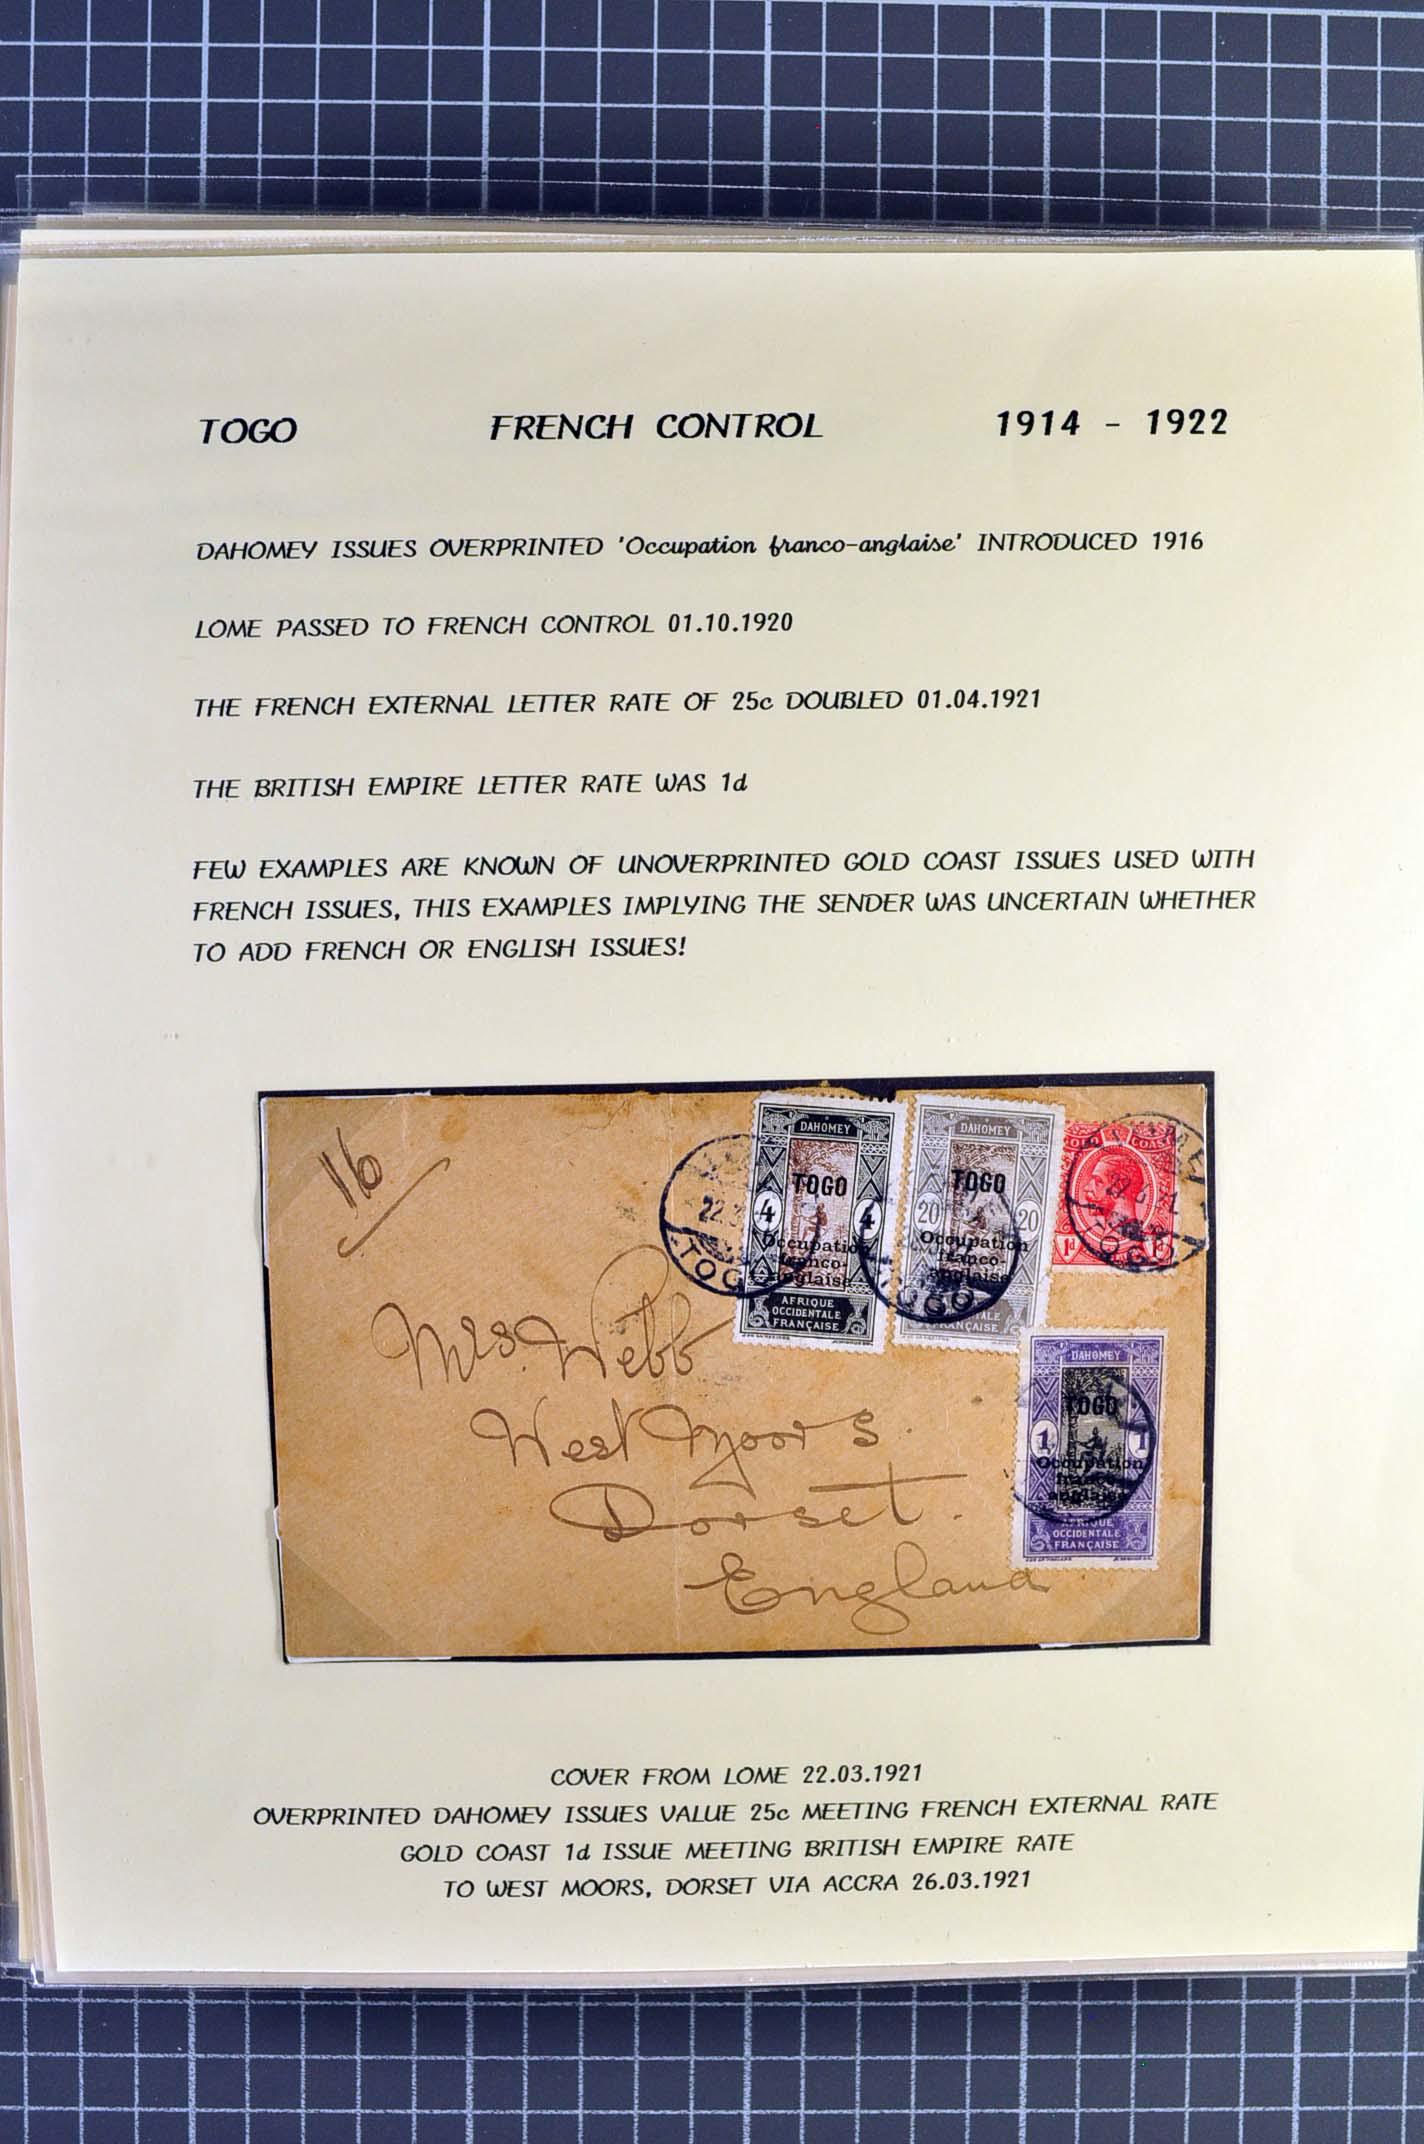 TOGO FRENCH CONTROL 1914 - 1922
DAHOMEY ISSUES OVERPRINTED 'Occupation franco-anglaise' INTRODUCED 1916
LOME PASSED TO FRENCH CONTROL 01.10.1920
THE FRENCH EXTERNAL LETTER RATE OF 25c DOUBLED 01.04.1921
THE BRITISH EMPIRE LETTER RATE WAS 1d
FEW EXAMPLES ARE KNOWN OF UNOVERPRINTED GOLD COAST ISSUES USED WITH
FRENCH ISSUES, THIS EXAMPLES IMPLYING THE SENDER WAS UNCERTAIN WHETHER
TO ADD FRENCH OR ENGLISH ISSUES!
116
DAHOMEY
TOGO
4 4
Occupation
franco-
anglaise
AFRIQUE
OCCIDENTALE
FRANÇAISE
DAHOMEY
TOGO
20 20
Occupation
franco-
anglaise
FRANÇAISE
GOLD COAST
1d
22.3
TOGO
TOGO
TOGO
DAHOMEY
TOGO
1 1
Occupation
franco-
anglaise
AFRIQUE
OCCIDENTALE
FRANÇAISE
Mrs. Webb
West Moors.
Dorset.
England
COVER FROM LOME 22.03.1921
OVERPRINTED DAHOMEY ISSUES VALUE 25c MEETING FRENCH EXTERNAL RATE
GOLD COAST 1d ISSUE MEETING BRITISH EMPIRE RATE
TO WEST MOORS, DORSET VIA ACCRA 26.03.1921